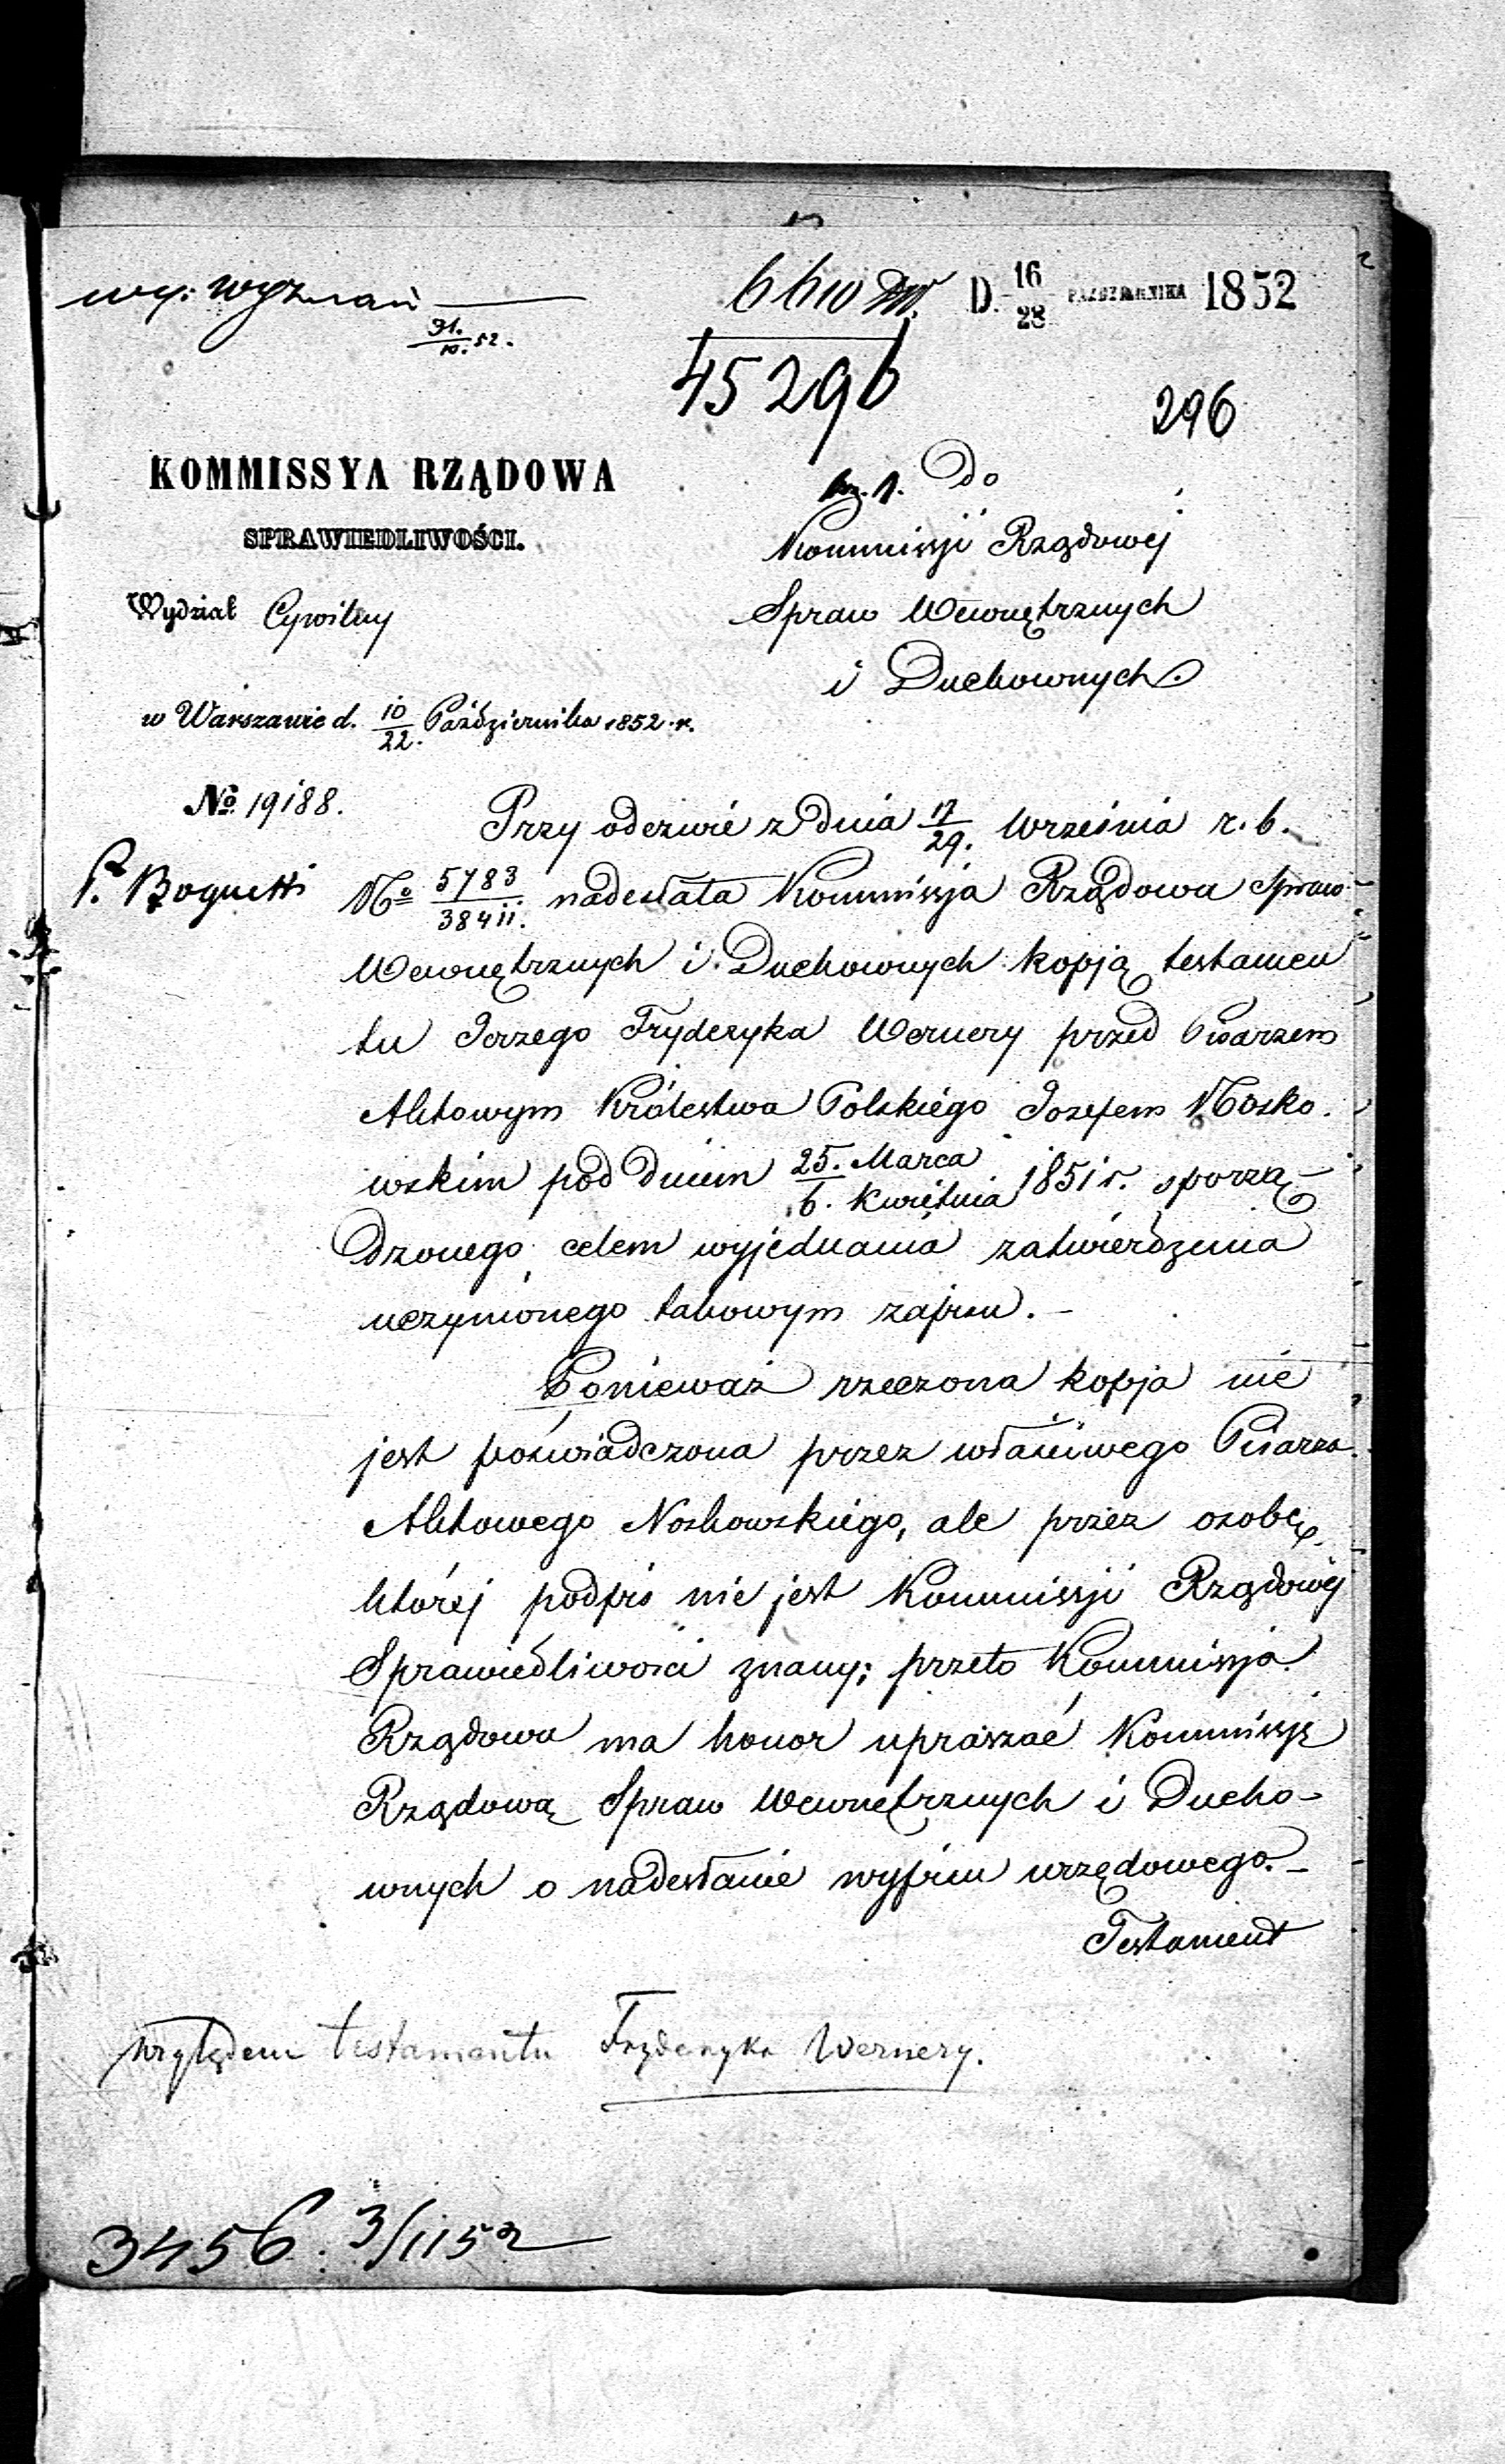 wyz: wyznań
31./10. 52.
D. 16/28 PAŹDZIERNIKA 1852
45296
296
KOMMISSYA RZĄDOWA
SPRAWIEDLIWOŚCI.
Wydział Cywilny
w Warszawie d. 10/22. Października 1852 r.
No. 19188.
Do
Kommissji Rządowej
Spraw Wewnętrznych
i Duchownych.
P. Boguetti
Przy odezwie z dnia 17/29. Września r. b.
No 5783/38411. nadesłała Kommissja Rządowa Spraw
Wewnętrznych i Duchownych kopją testamen
tu Jerzego Fryderyka Wernery przed Pisarzem
Aktowym Królestwa Polskiego Jozefem Nosko.
wskim pod dniem 25. Marca/6. Kwietnia 1851 r. sporzą-
dzonego, celem wyjednania zatwierdzenia
uczynionego takowym zapisu. -
Ponieważ rzeczona kopja nie
jest poświadczona przez właściwego Pisarza
Aktowego Noskowskiego, ale przez osobę,
której podpis nie jest Kommissji Rządowej
Sprawiedliwości znany; przeto Kommissja
Rządowa ma honor upraszać Kommissję
Rządową Spraw Wewnętrznych i Ducho-
wnych o nadesłanie wypisu urzędowego. -
Testament
względem testamentu Fryderyka Wernery.
3456. 3/11 52